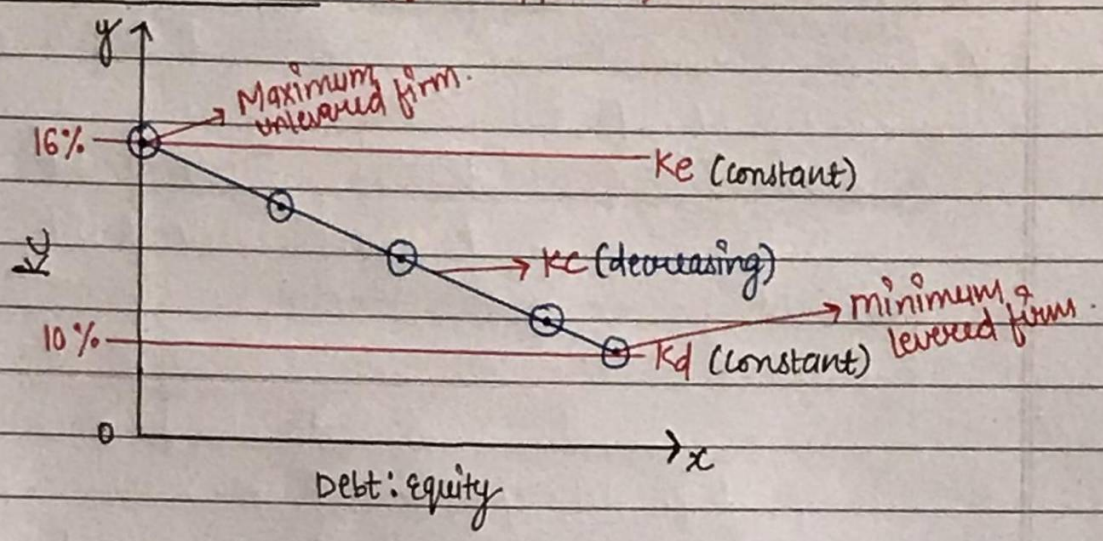 y
Maximum,
unlevered firm.
16%
Ke (constant)
Kc
Kc (decreasing)
minimum &
levered firm.
10%
Kd (constant)
0
x
Debt : Equity